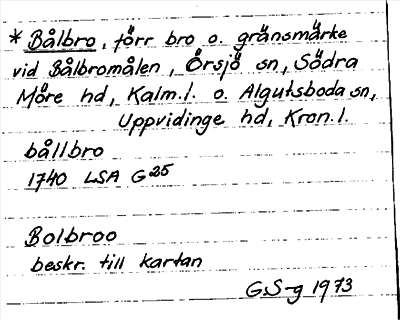 * Bålbro, förr bro o. gränsmärke
vid Bålbromålen, Örsjö sn, Södra
Möre hd, Kalm.l. o. Algutsboda sn,
Uppvidinge hd, Kron.l.
bållbro
1740 LSA G25
Bolbroo
beskr. till kartan
G.S-g 1973